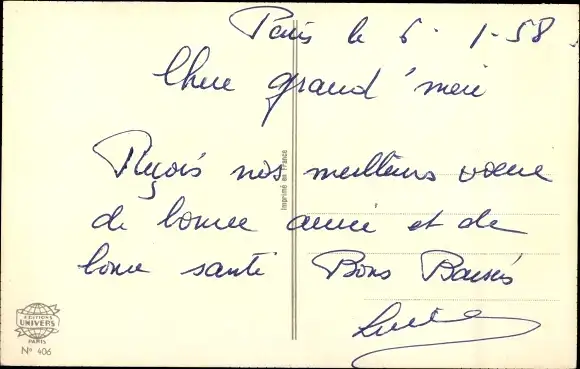 Paris le 6. 1-58.
Chere grand'mere
Reçois nos meilleurs voeux
de bonne année et de
bonne santé Bons Baisers
Imprimé en France
EDITIONS
UNIVERS
PARIS
N° 406